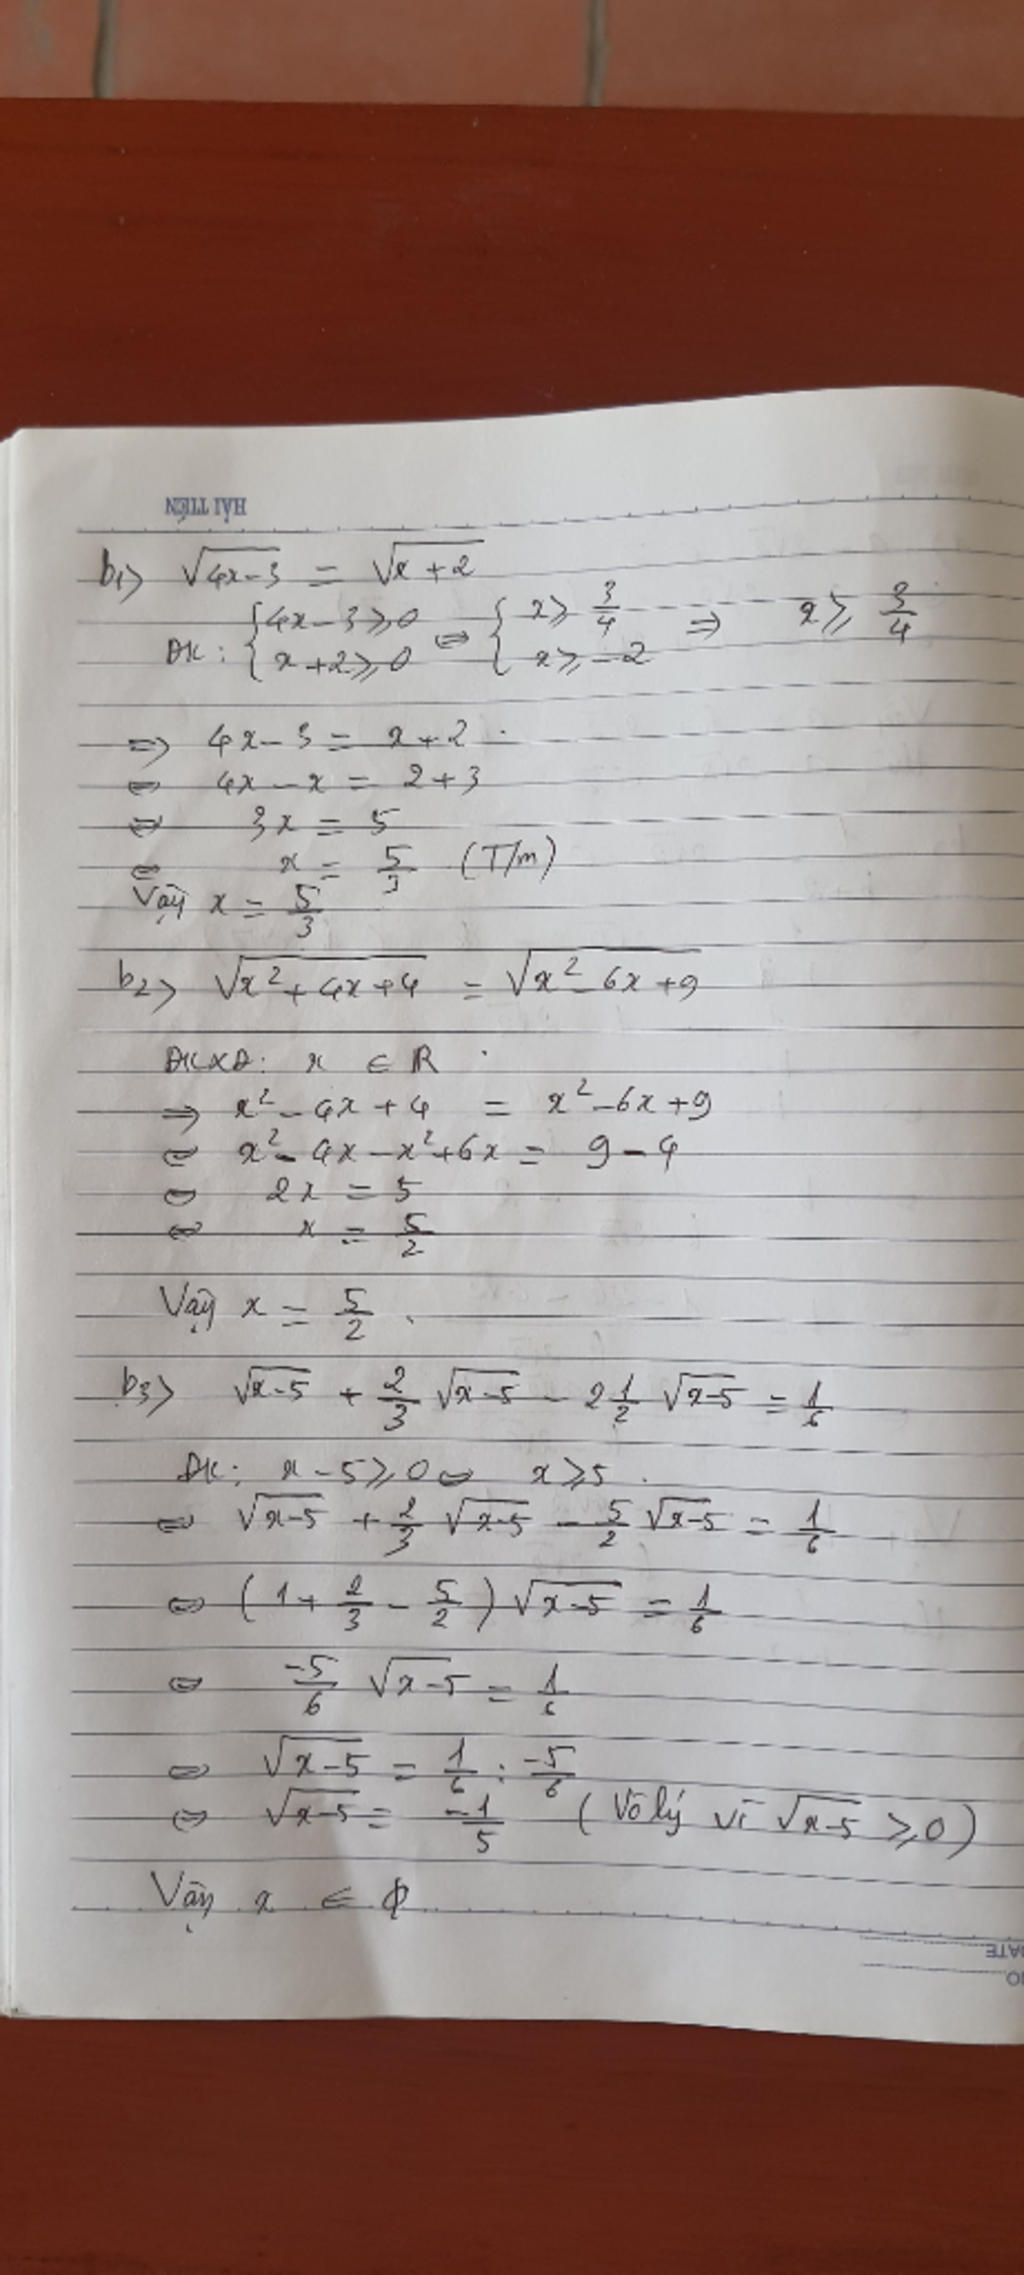 HẢI TIẾN
b₁> √(4x-3) = √(x+2)
ĐK: { 4x-3 ≥ 0 ; x+2 ≥ 0 ⇔ { x ≥ 3/4 ; x ≥ -2 ⇒ x ≥ 3/4
⇒ 4x-3 = x+2
⇔ 4x-x = 2+3
⇔ 3x = 5
⇔ x = 5/3 (T/m)
Vậy x = 5/3
b₂> √(x²+4x+4) = √(x²-6x+9)
ĐKXĐ: x ∈ R
⇒ x²-4x+4 = x²-6x+9
⇔ x²-4x-x²+6x = 9-4
⇔ 2x = 5
⇔ x = 5/2
Vậy x = 5/2.
b₃> √(x-5) + 2/3 √(x-5) - 2 1/2 √(x-5) = 1/6
ĐK: x-5 ≥ 0 ⇔ x ≥ 5.
⇔ √(x-5) + 2/3 √(x-5) - 5/2 √(x-5) = 1/6
⇔ (1 + 2/3 - 5/2) √(x-5) = 1/6
⇔ -5/6 √(x-5) = 1/6
⇔ √(x-5) = 1/6 : -5/6
⇔ √(x-5) = -1/5 (Vô lý vì √(x-5) ≥ 0)
Vậy x ∈ ϕ